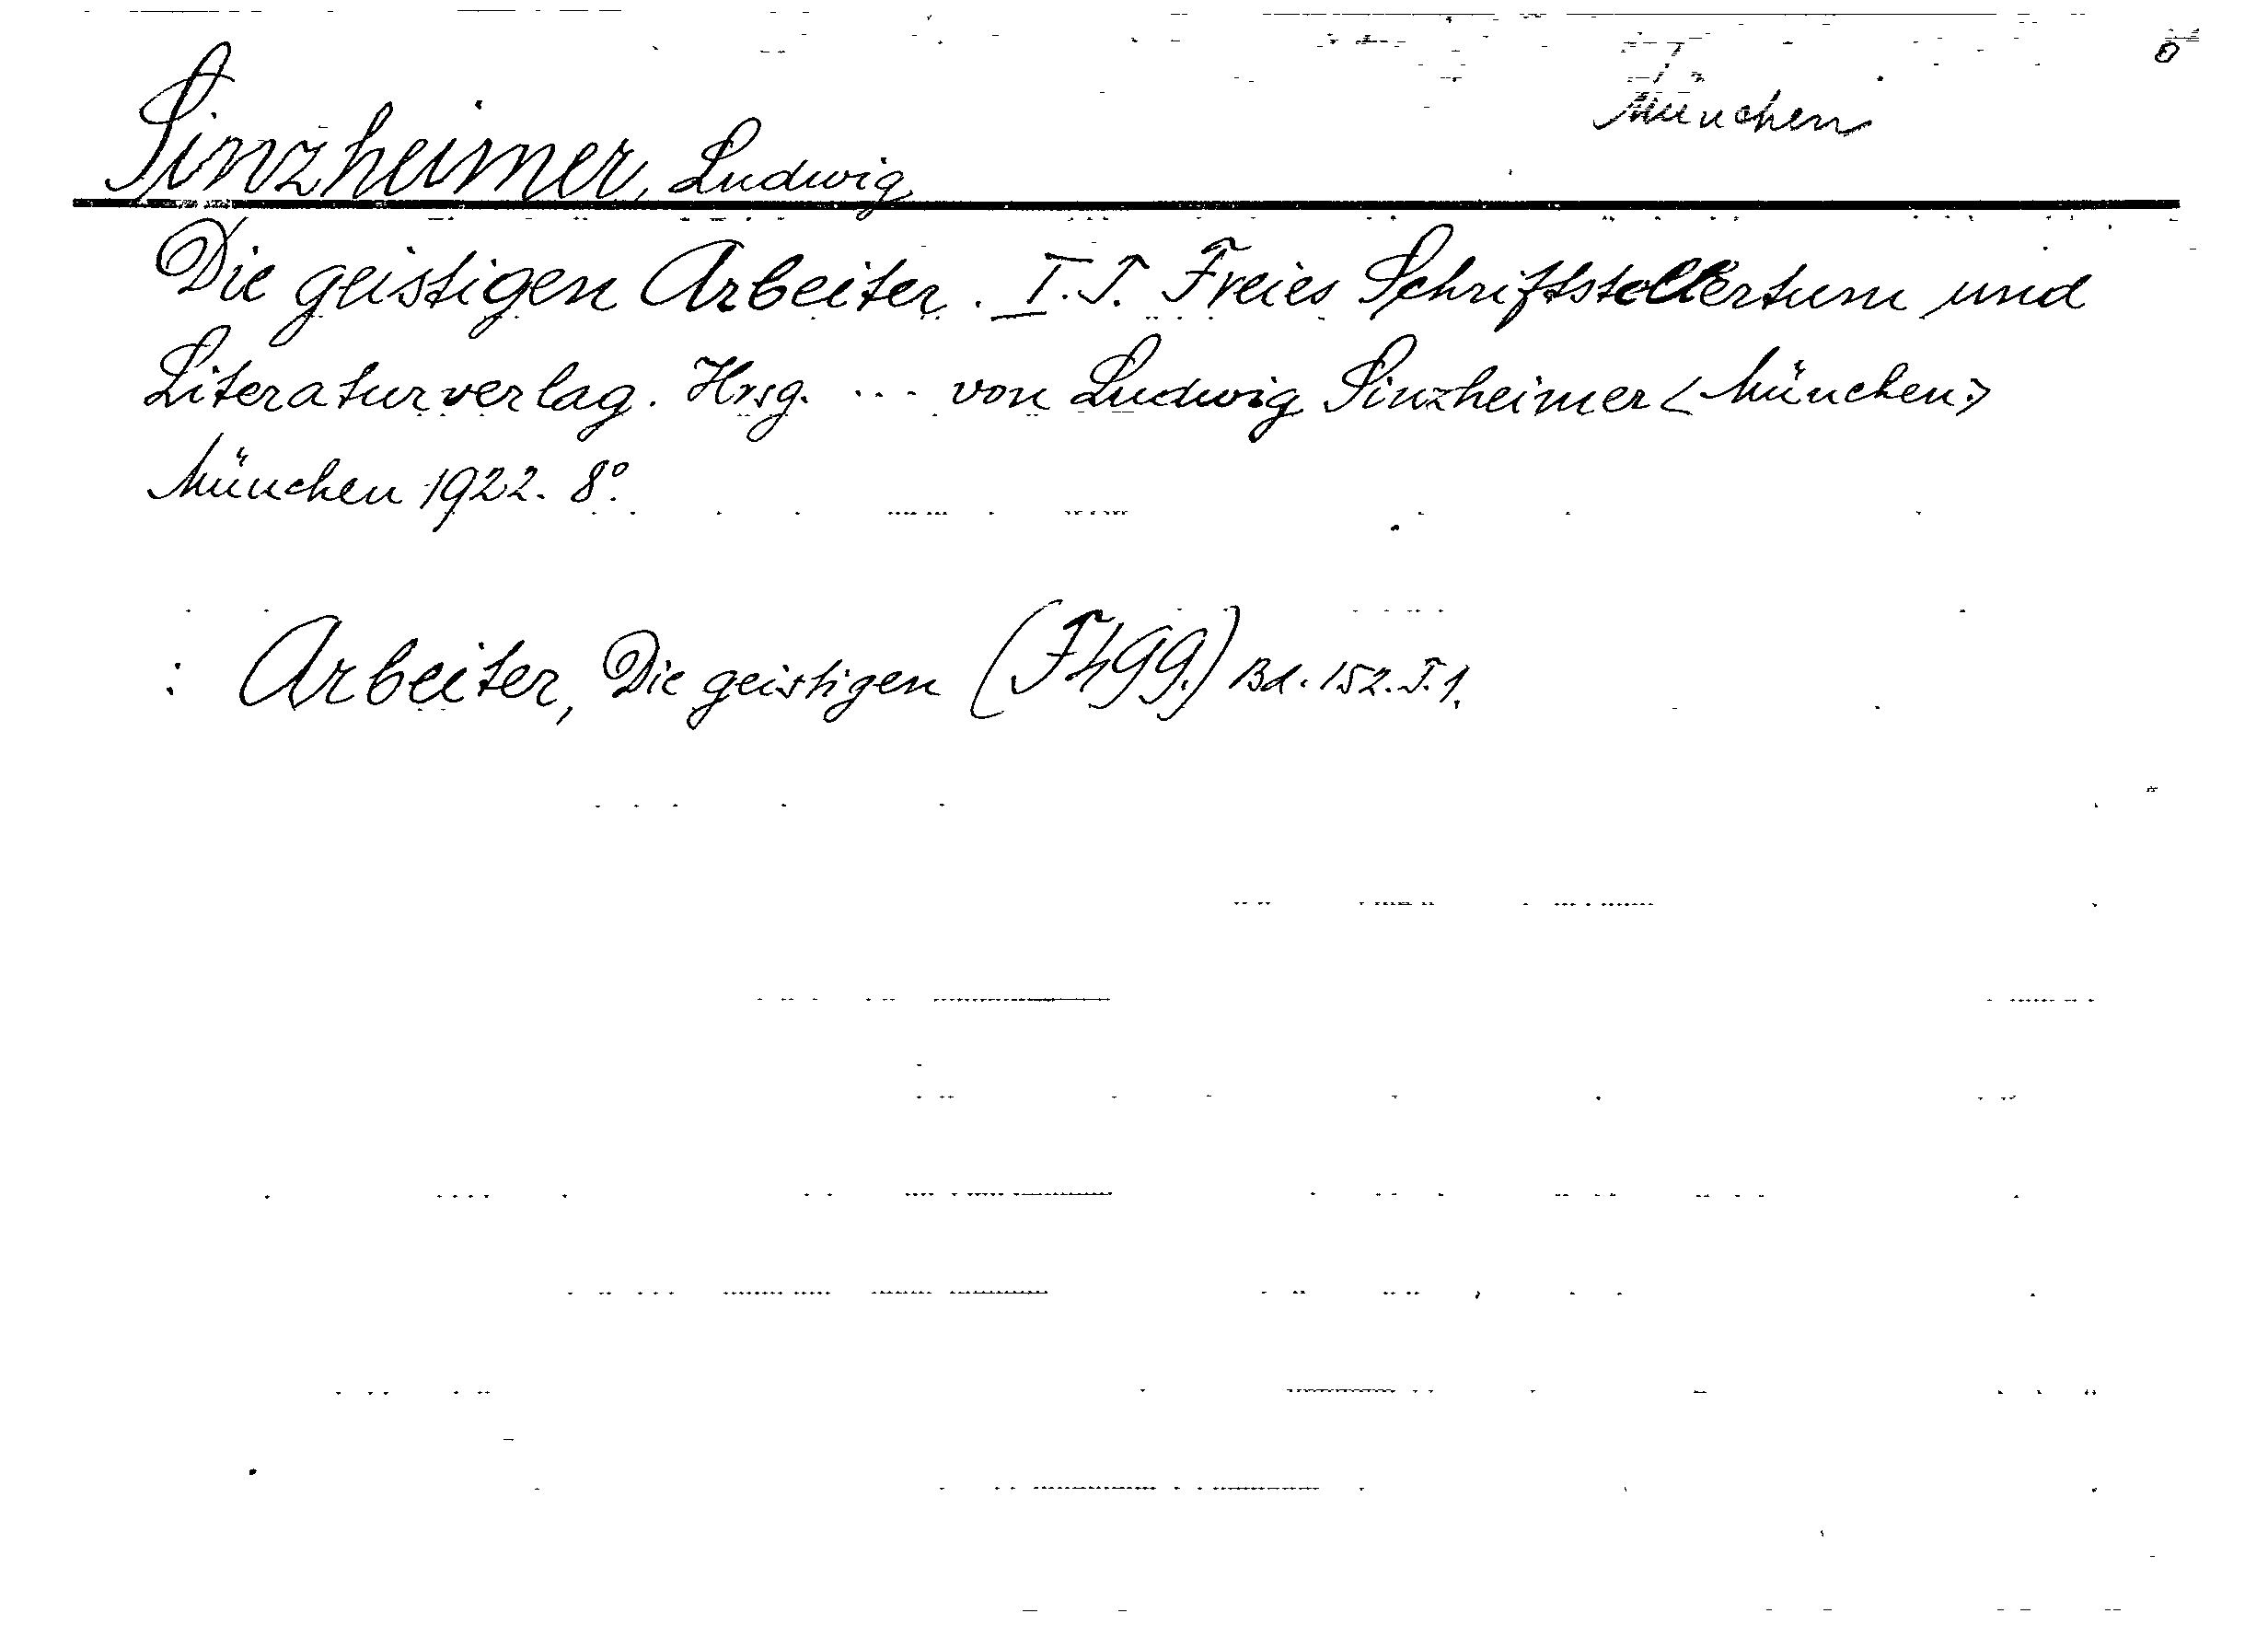 München
Sinzheimer, Ludwig
Die geistigen Arbeiter. I. T. Freies Schriftstellertum und
Literaturverlag. Hrsg. ... von Ludwig Sinzheimer <München>
München 1922. 8°.
: Arbeiter, Die geistigen (Fh99.) Bd. 152. T. 1.